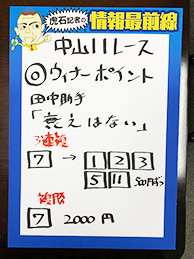 虎石記者の情報最前線
中山11レース
◎ウィナーポイント
田中助手
「衰えはない」
3連複
7→1 2 3
5 11 500円ずつ
複勝
7 2000円